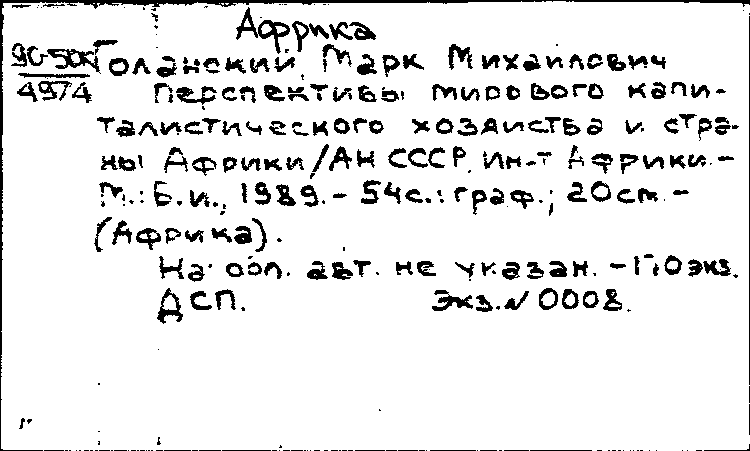 Африка
Голанский, Марк Михайлович
4974
Перспективы мирового капи-
талистического хозяйства и стра-
ны Африки/АН СССР, Ин-т Африки.-
М.: Б.и., 1989.- 54с.: граф.; 20см.-
(Африка).
На обл. авт. не указан. -
ДСП. Экз.№ 0008.